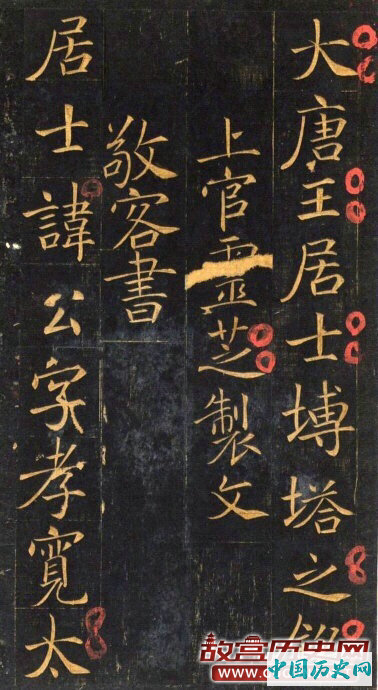 大唐王居士塼塔之銘
上官靈芝製文
敬客書
居士諱公字孝寬太
故宫历史网
中国历史网